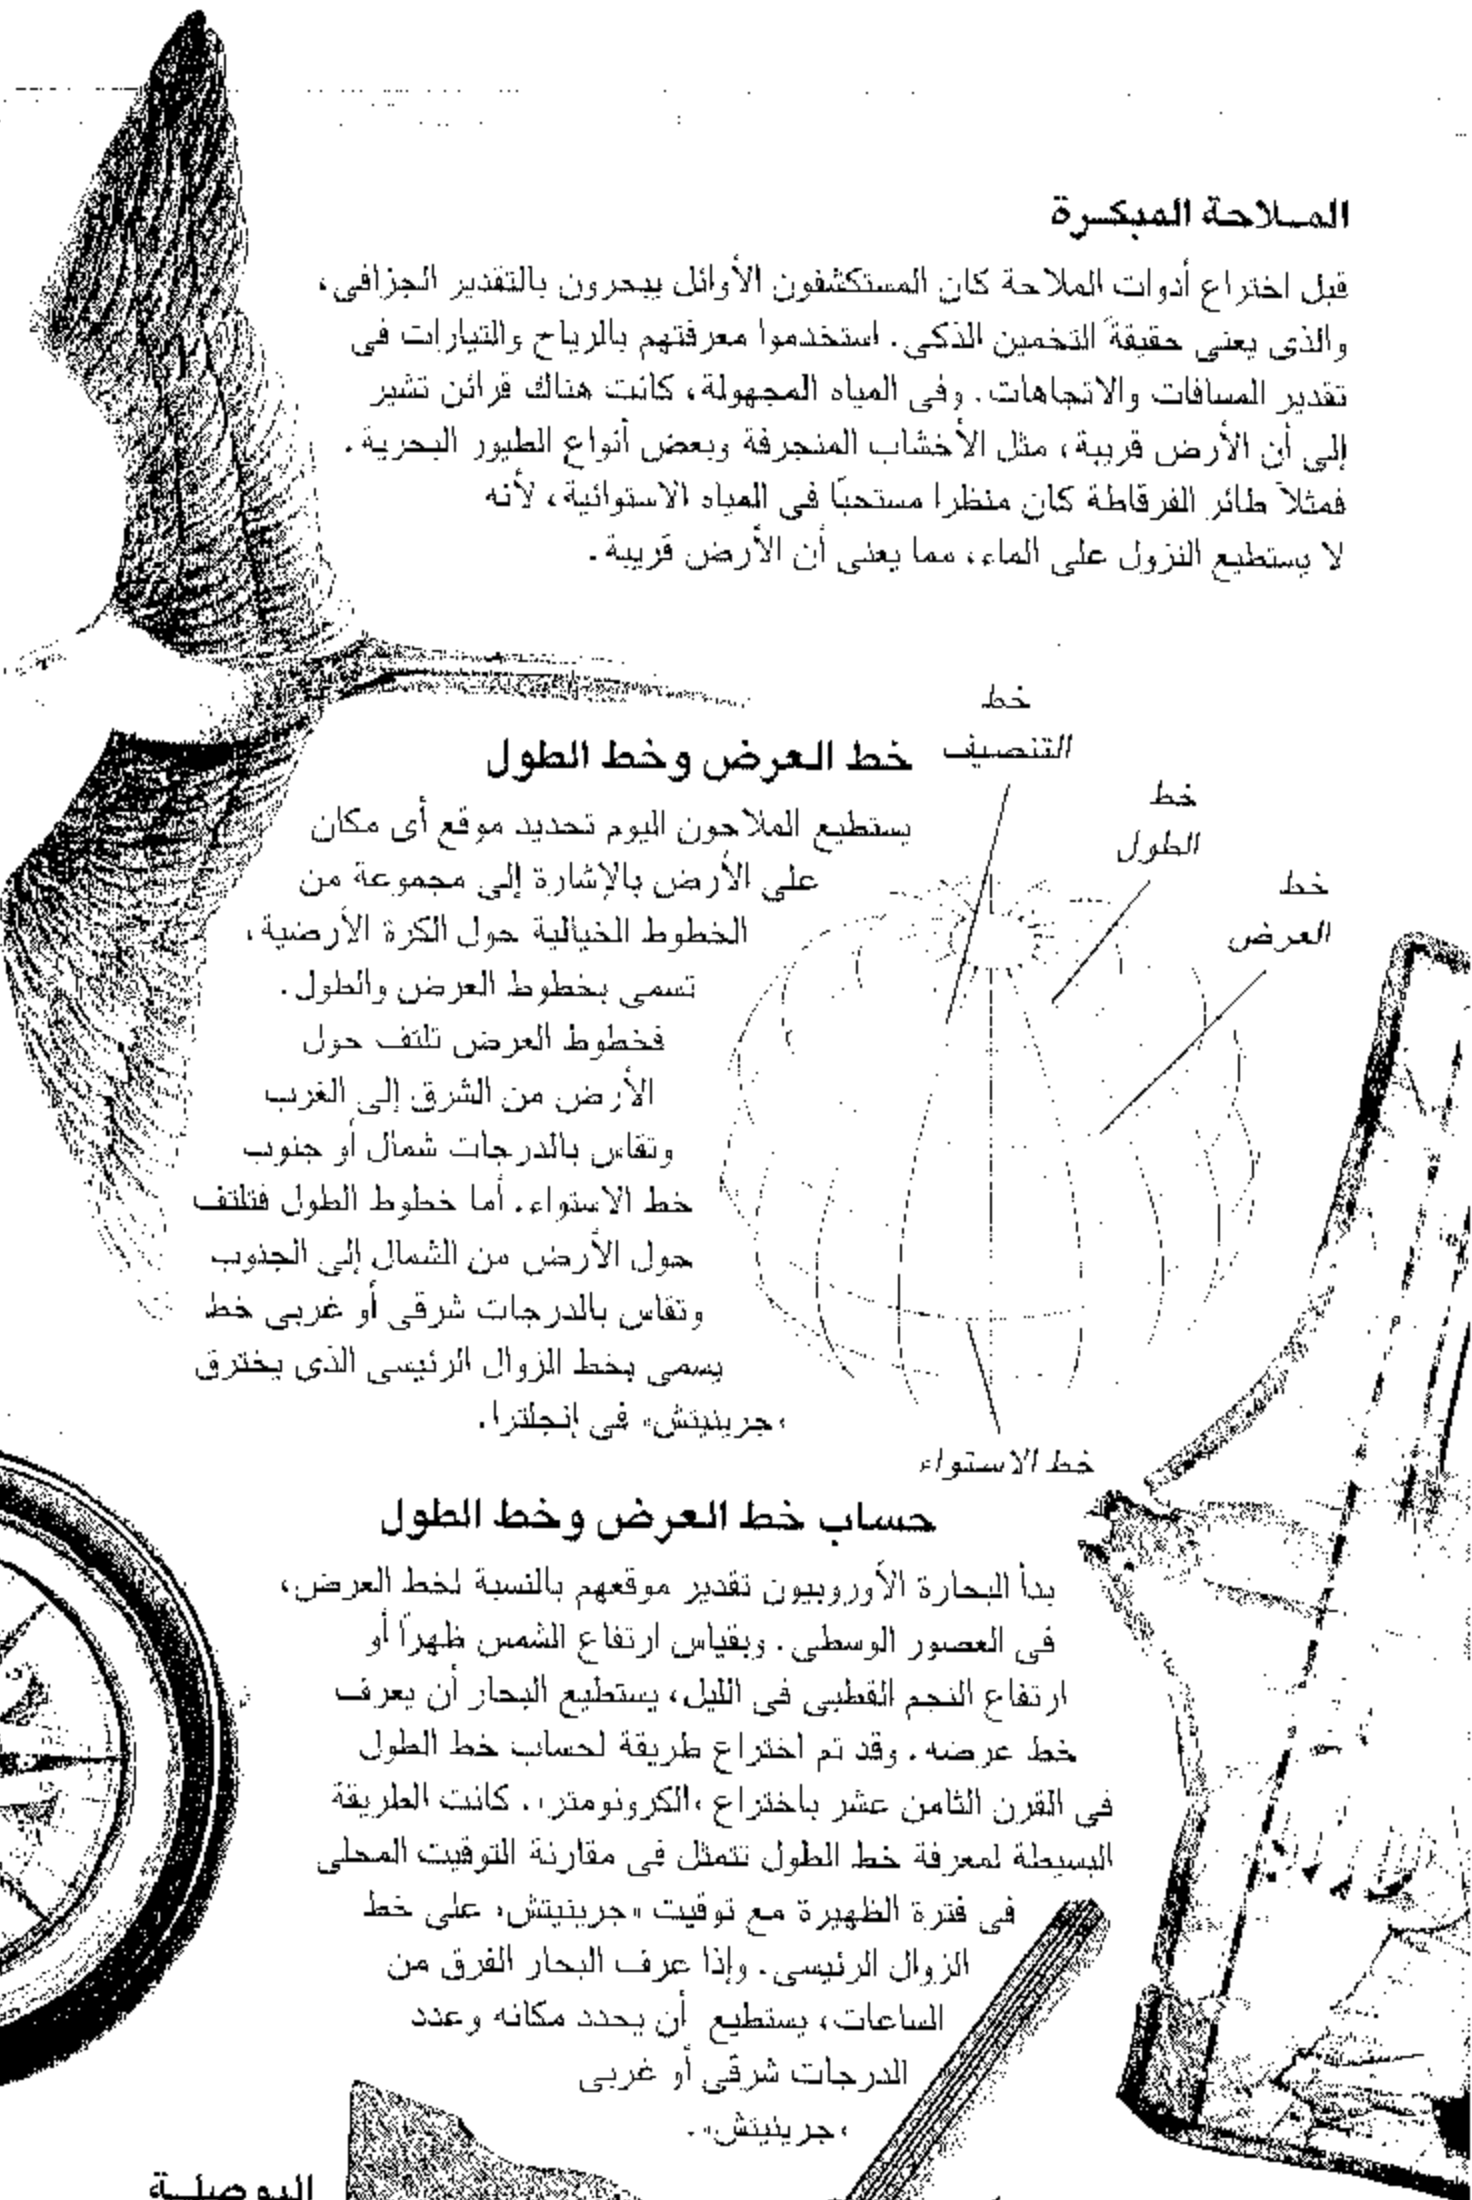 المـلاحة المبكـرة
قبل اختراع أدوات الملاحة كان المستكشفون الأوائل يبحرون بالتقدير الجزافى،
والذى يعنى حقيقةً التخمين الذكى. استخدموا معرفتهم بالرياح والتيارات فى
تقدير المسافات والاتجاهات. وفى المياه المجهولة، كانت هناك قرائن تشير
إلى أن الأرض قريبة، مثل الأخشاب المنجرفة وبعض أنواع الطيور البحرية.
فمثلاً طائر الفرقاطة كان منظرا مستحبًا فى المياه الاستوائية، لأنه
لا يستطيع النزول على الماء، مما يعنى أن الأرض قريبة.
خط
التنصيف
خط
الطول
خط
العرض
خط العرض وخط الطول
يستطيع الملاحون اليوم تحديد موقع أى مكان
على الأرض بالإشارة إلى مجموعة من
الخطوط الخيالية حول الكرة الأرضية،
تسمى بخطوط العرض والطول.
فخطوط العرض تلتف حول
الأرض من الشرق إلى الغرب
وتقاس بالدرجات شمال أو جنوب
خط الاستواء. أما خطوط الطول فتلتف
حول الأرض من الشمال إلى الجنوب
وتقاس بالدرجات شرقى أو غربى خط
يسمى بخط الزوال الرئيسى الذى يخترق
«جرينيتش» فى إنجلترا.
خط الاستواء
حساب خط العرض وخط الطول
بدأ البحارة الأوروبيون تقدير موقعهم بالنسبة لخط العرض،
فى العصور الوسطى. وبقياس ارتفاع الشمس ظهراً أو
ارتفاع النجم القطبى فى الليل، يستطيع البحار أن يعرف
خط عرضه. وقد تم اختراع طريقة لحساب خط الطول
فى القرن الثامن عشر باختراع «الكرونومتر». كانت الطريقة
البسيطة لمعرفة خط الطول تتمثل فى مقارنة التوقيت المحلى
فى فترة الظهيرة مع توقيت «جرينيتش» على خط
الزوال الرئيسى. وإذا عرف البحار الفرق من
الساعات، يستطيع أن يحدد مكانه وعدد
الدرجات شرقى أو غربى
«جرينيتش».
البوصلـة